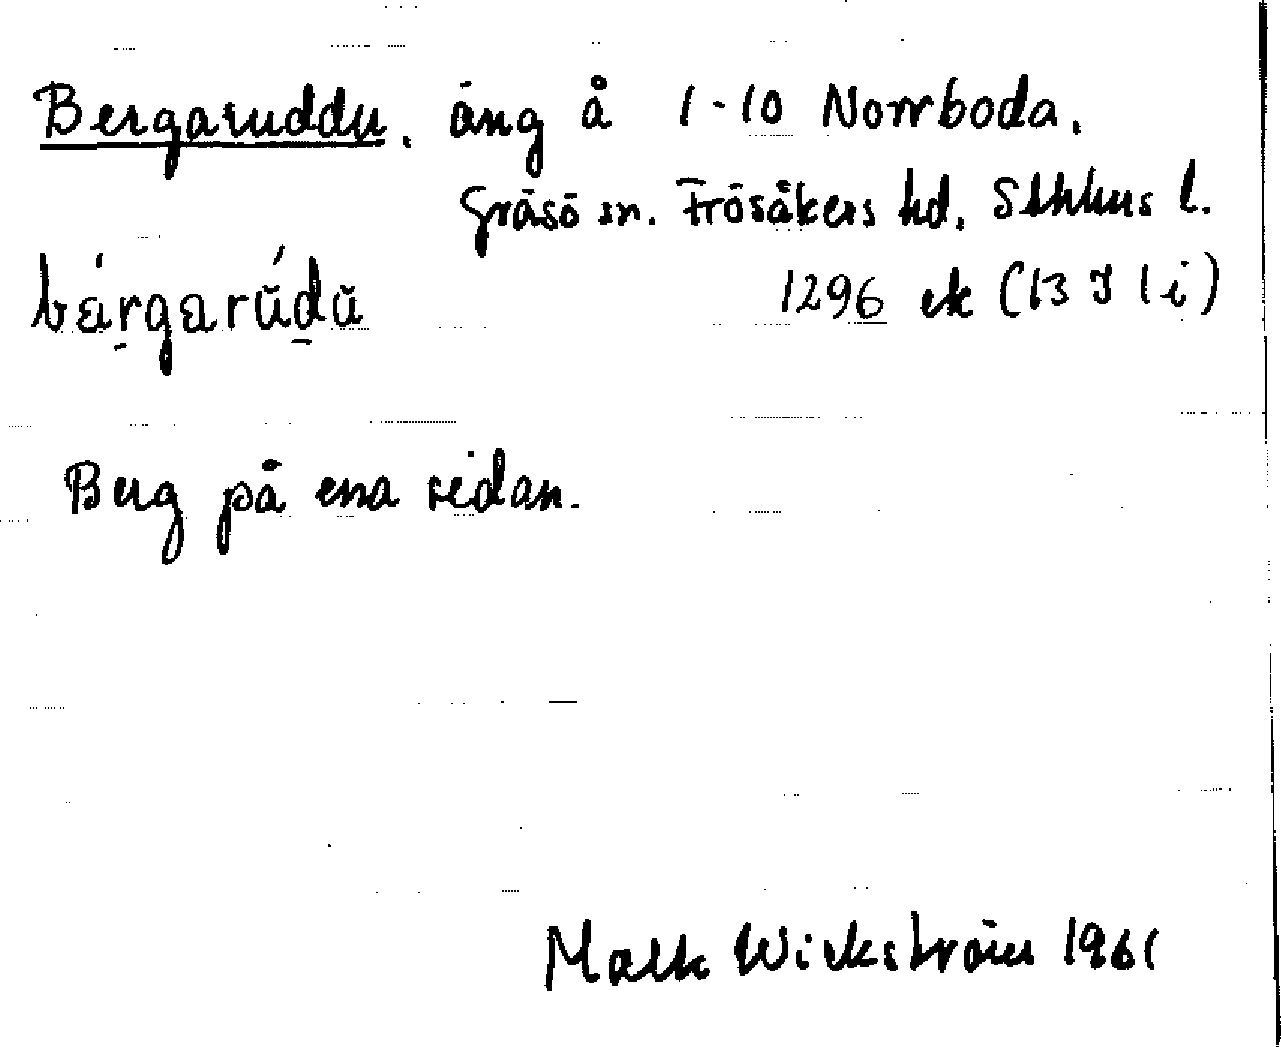 Bergaruddu, äng å 1-10 Norrboda,
Gräsö sn. Frösåkers hd, Sthlms l.
bärgarŭdŭ 1296 ek (13 I 1 i)
Berg på ena sidan.
Wickström 1961